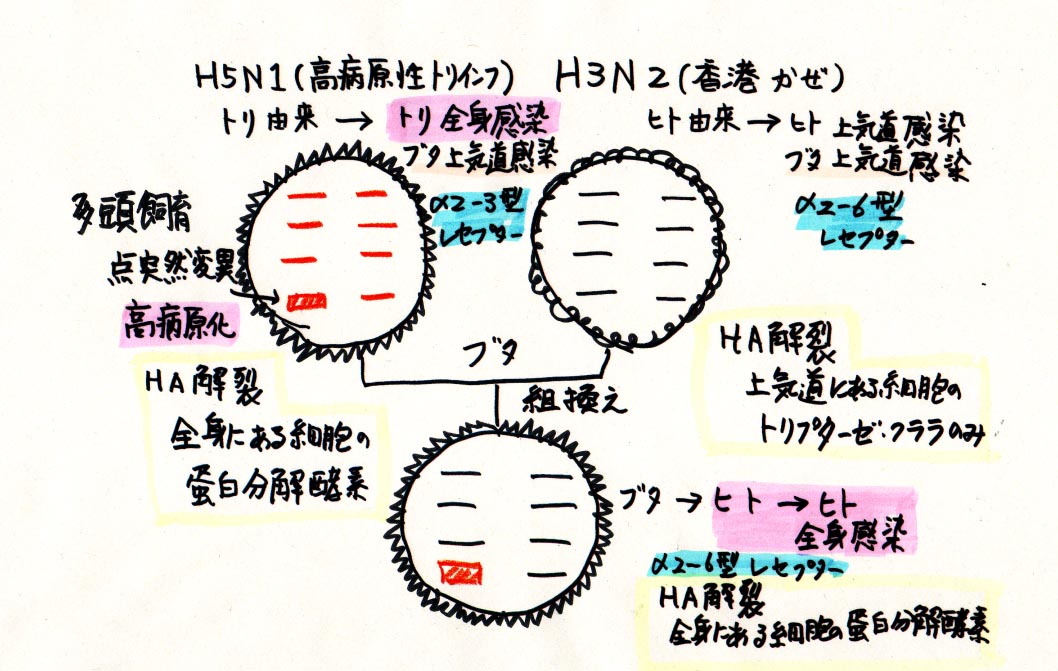 H5N1(高病原性トリインフ) H3N2(香港かぜ)
トリ由来 → トリ全身感染
ブタ上気道感染
ヒト由来 → ヒト上気道感染
ブタ上気道感染
α2-3型
レセプター
α2-6型
レセプター
多頭飼育
点突然変異
高病原化
HA解裂
全身にある細胞の
蛋白分解酵素
ブタ
組換え
HA解裂
上気道にある細胞の
トリプターゼ・クララのみ
ブタ → ヒト → ヒト
全身感染
α2-6型レセプター
HA解裂
全身にある細胞の蛋白分解酵素